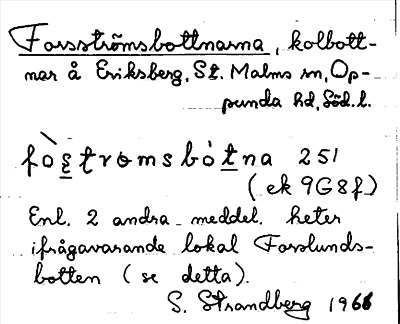 Forsströmsbottnarna, kolbott-
nar å Eriksberg, St. Malms sn, Op-
punda hd, Söd. l.
fòs̲tromsbòt̲na 251
(ek 9G8f)
Enl. 2 andra meddel. heter
ifrågavarande lokal Forslunds-
botten (se detta).
S. Strandberg 1966